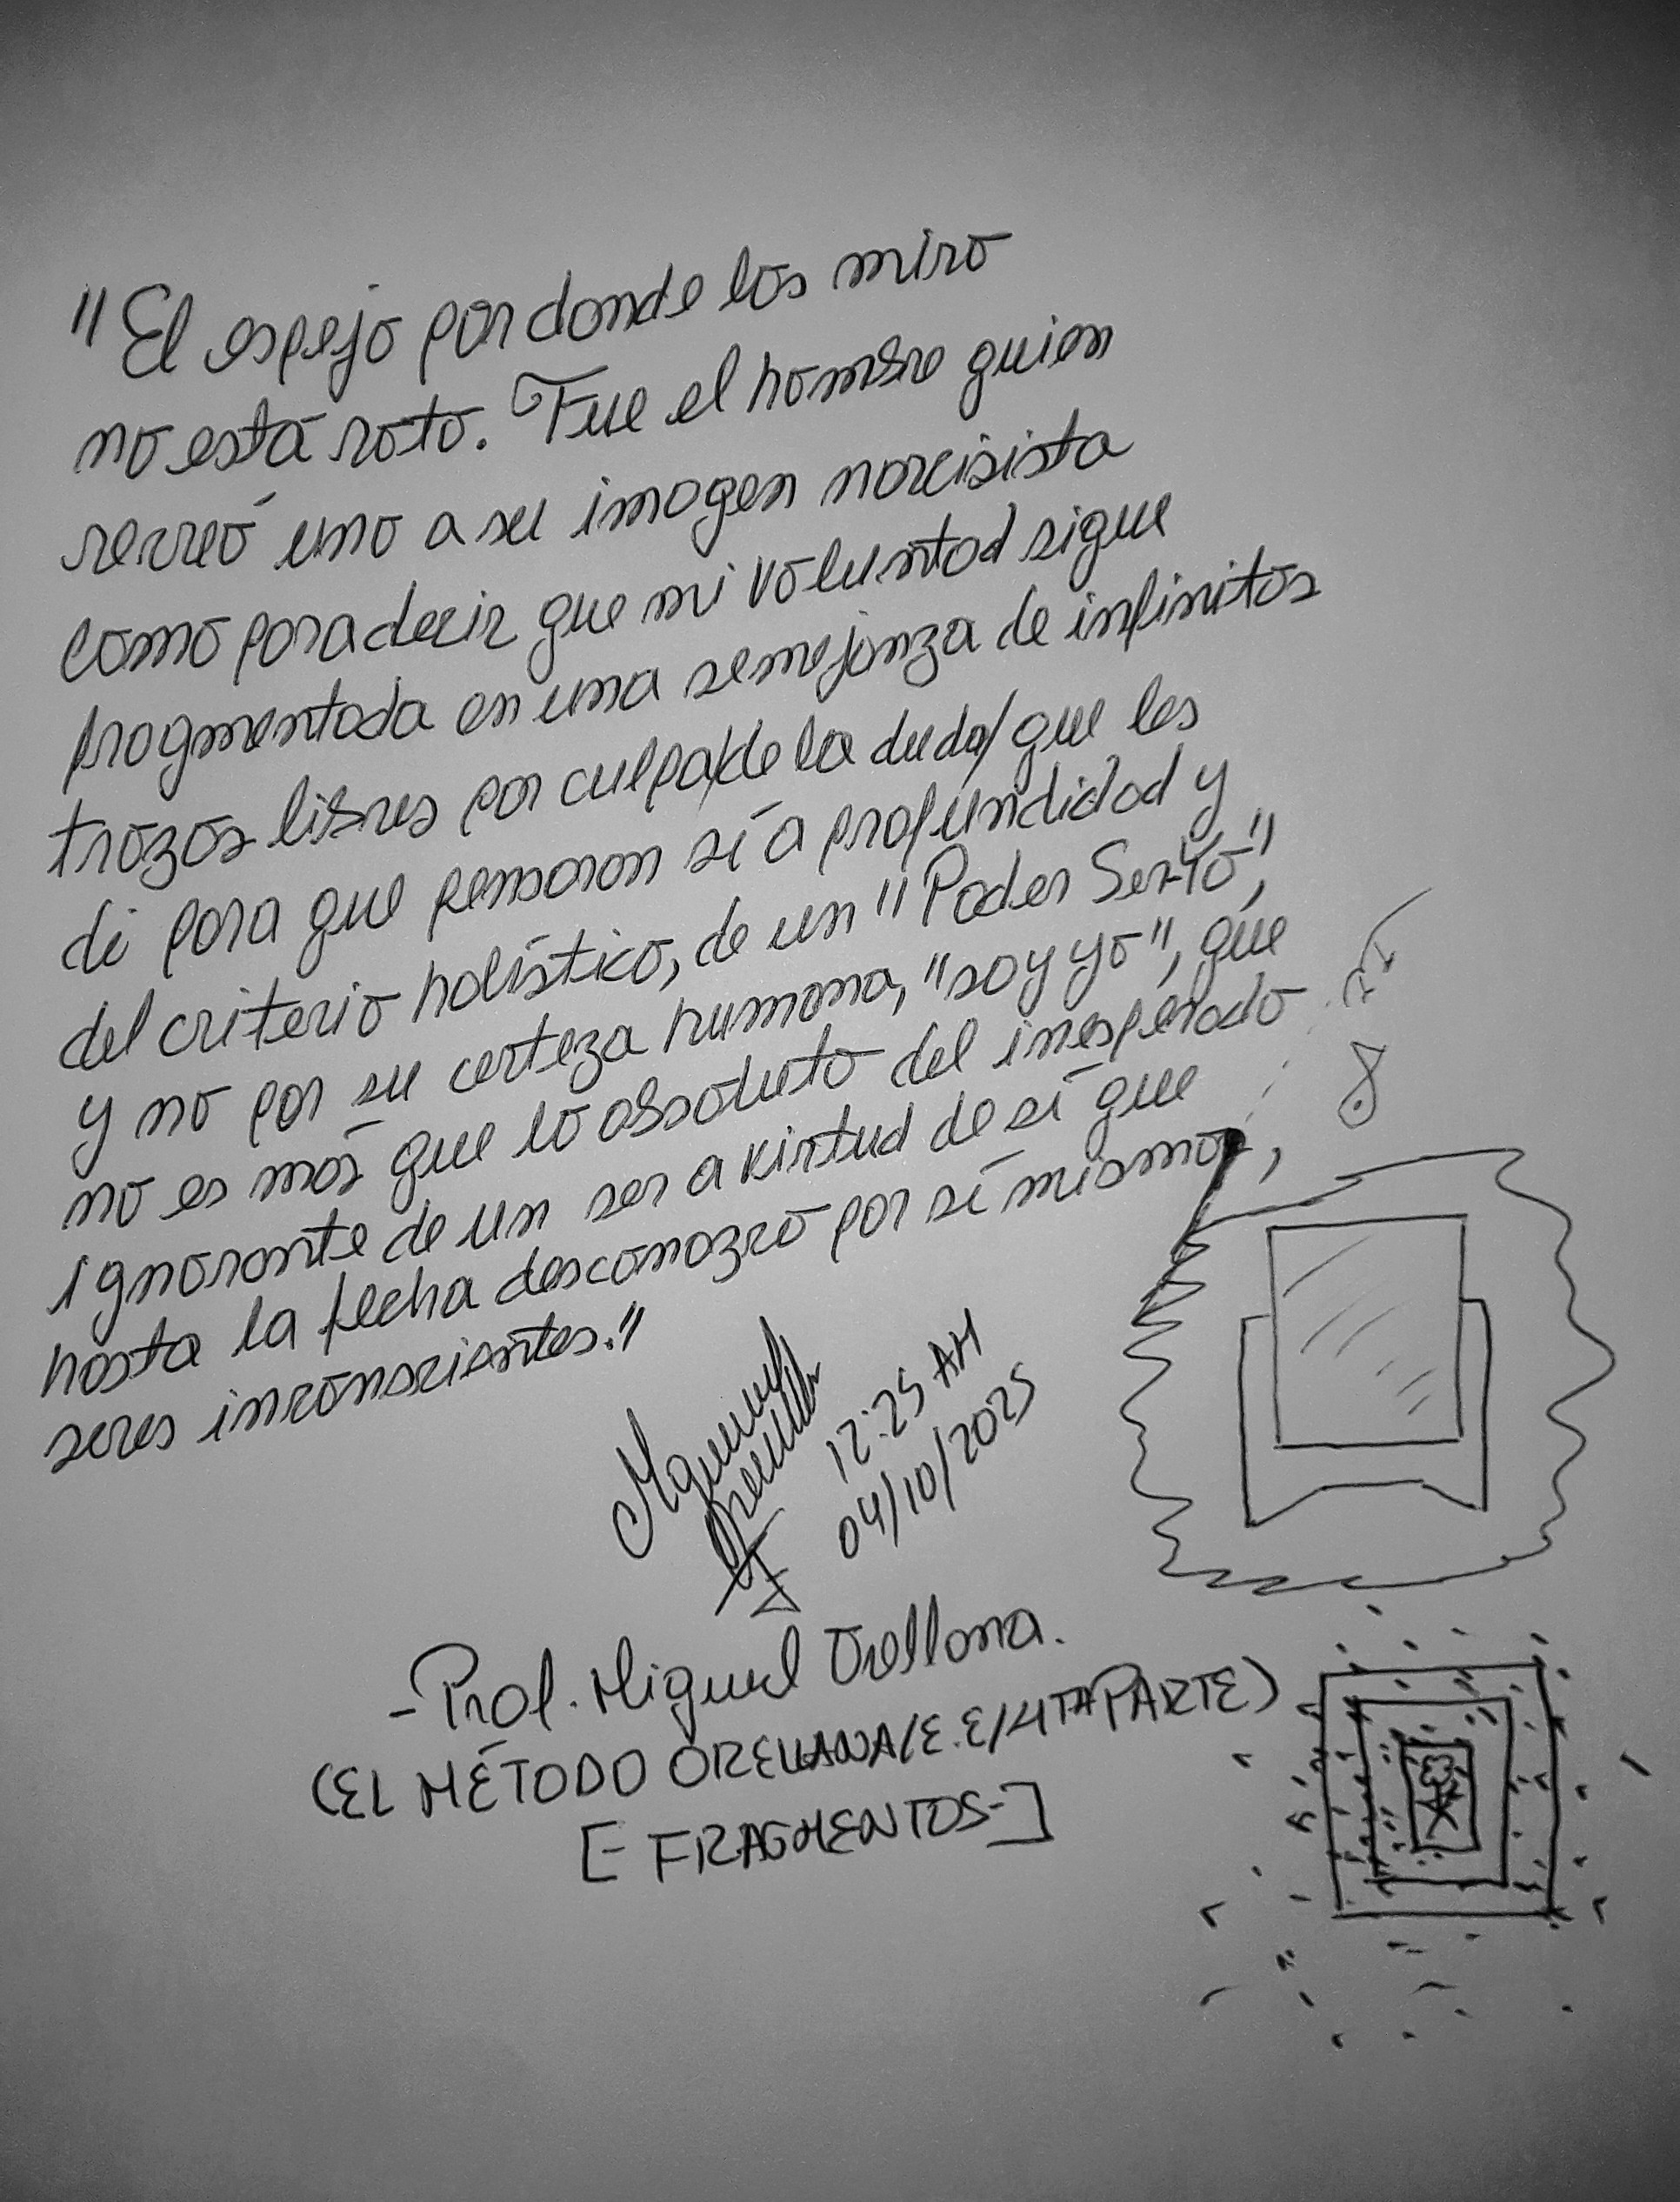 "El espejo por donde los miro
no está roto. Fue el hombre quien
recreó uno a su imagen narcisista
como para decir que mi voluntad sigue
fragmentada en una semejanza de infinitos
trozos libres por culpa/de la duda/que les
di para que pensaran sí a profundidad y
del criterio holístico, de un "Poder Ser-Yo",
y no por su certeza humana, "soy yo", que
no es más que lo absoluto del inesperado
ignorante de un ser a virtud de sí que
hasta la fecha desconozco por sí mismos,
seres inconscientes."
12:25 AM
04/10/2025
-Prof. Miguel Orellana.
(EL MÉTODO ORELLANA/E.E/4TA PARTE)
[-FRAGMENTOS-]